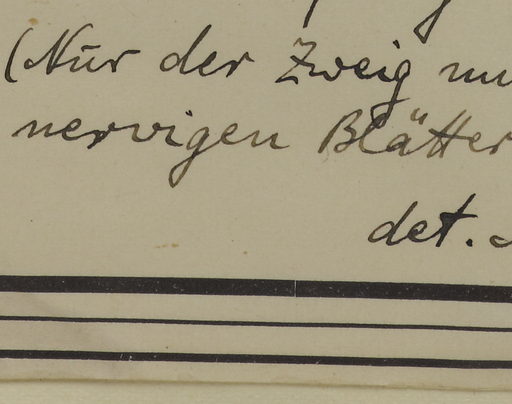 (Nur der Zweig
nervigen Blätter
det.